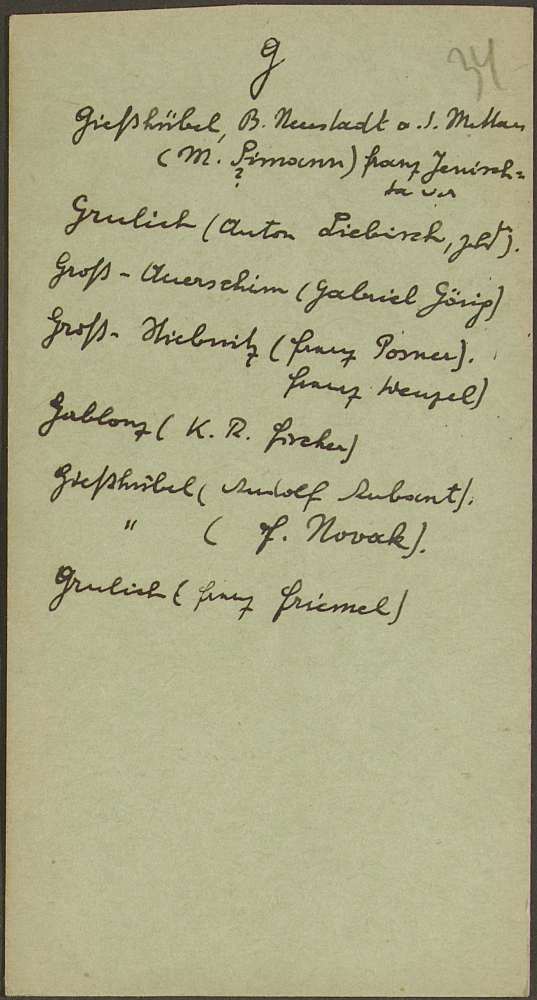 G
34
Gießhübel, B. Neustadt a. d. Mettau
(M. Simann) Franz Jenisch=
?
Grulich (Anton Liebisch, ).
Groß-Auerschim (Gabriel Görig)
Groß- Stiebnitz (Franz Posner).
Franz Wenzel)
Gablonz (K. R. Fischer)
Gießhübel (Rudolf Rubant).
" (J. Novak).
Grulich (Franz Friemel)